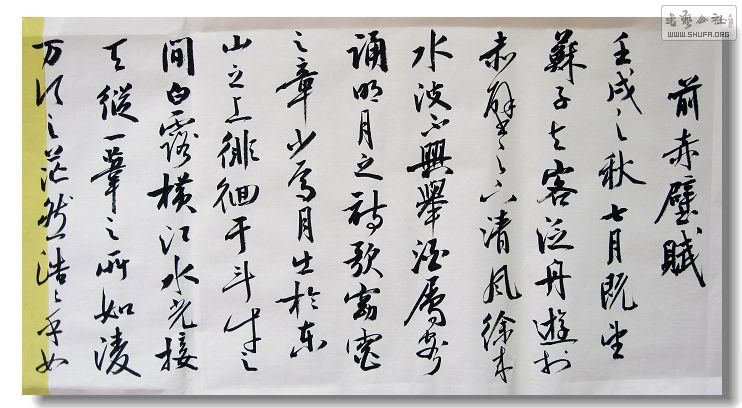 前赤壁賦
壬戌之秋七月既望
蘇子与客泛舟遊於
赤壁之下清風徐来
水波不興舉酒属客
誦明月之詩歌窈窕
之章少焉月出於东
山之上徘徊于斗牛之
間白露横江水光接
天縱一葦之所如凌
万顷之茫然浩浩乎如
書藝公社
WWW.SHUFA.ORG